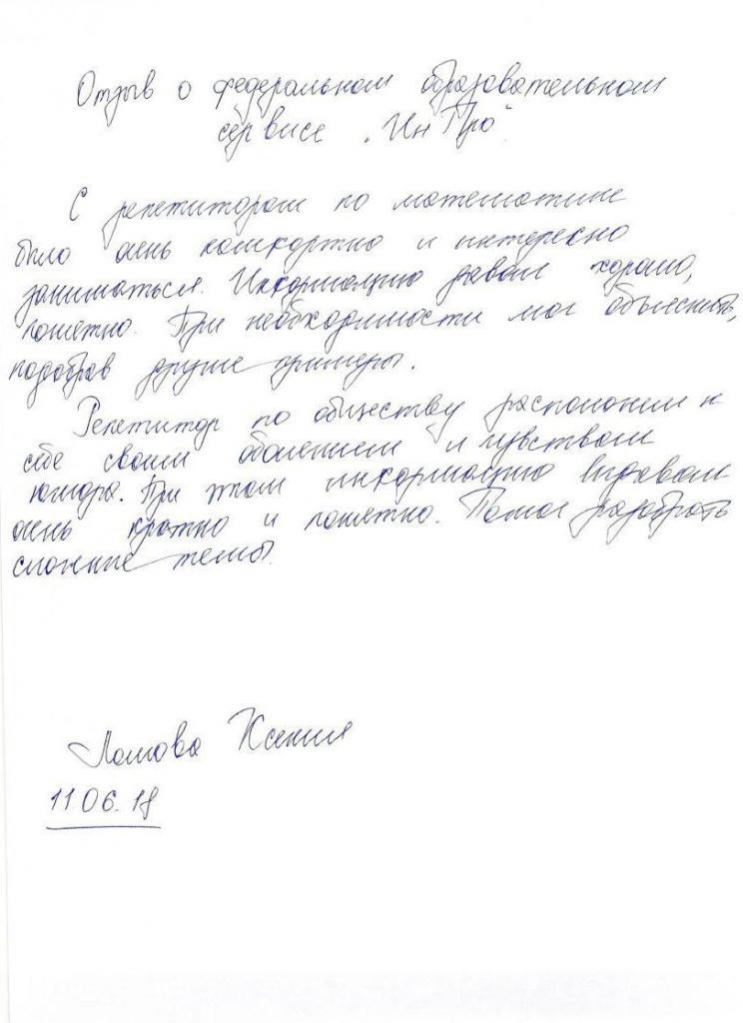 Отзыв о федеральном образовательном
сервисе „ИнПро"
С репетитором по математике
было очень комфортно и интересно
заниматься. Информацию давал хорошо,
понятно. При необходимости мог объяснить,
подобрав другие примеры.
Репетитор по обществу расположил к
себе своим обаянием и чувством
юмора. При этом информацию выдавал
очень кратко и понятно. Помог разобрать
сложные темы.
Ломова Ксения
11.06.18